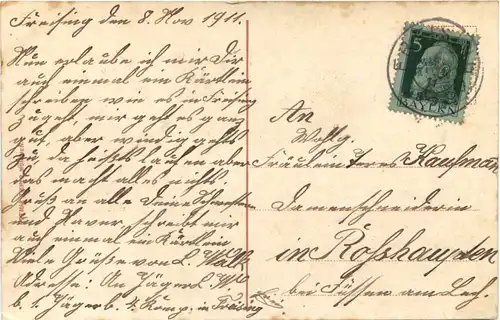 Freising den 8. Nov 1911.
Nun erlaube ich mir Dir
auch einmal ein Kärtlein
schreiben wie es in Freising
zugeht, mir geht es ganz
gut, aber windig gehts
zu, da heißts laufen aber
das macht alles nichts.
Gruß an alle Deine Schwestern
und Xaver, schreibt mir
auch einmal ein Kärtlein
Viele Grüße von L.
Adresse: An Jäger L.
b. 1. Jägerb. 4. Komp. in Freising
5
BAYERN
An
Wohlg.
Fräulein Teres Kaufmann
Damenschneiderin
in Roßhaupten
bei Füssen am Lech.